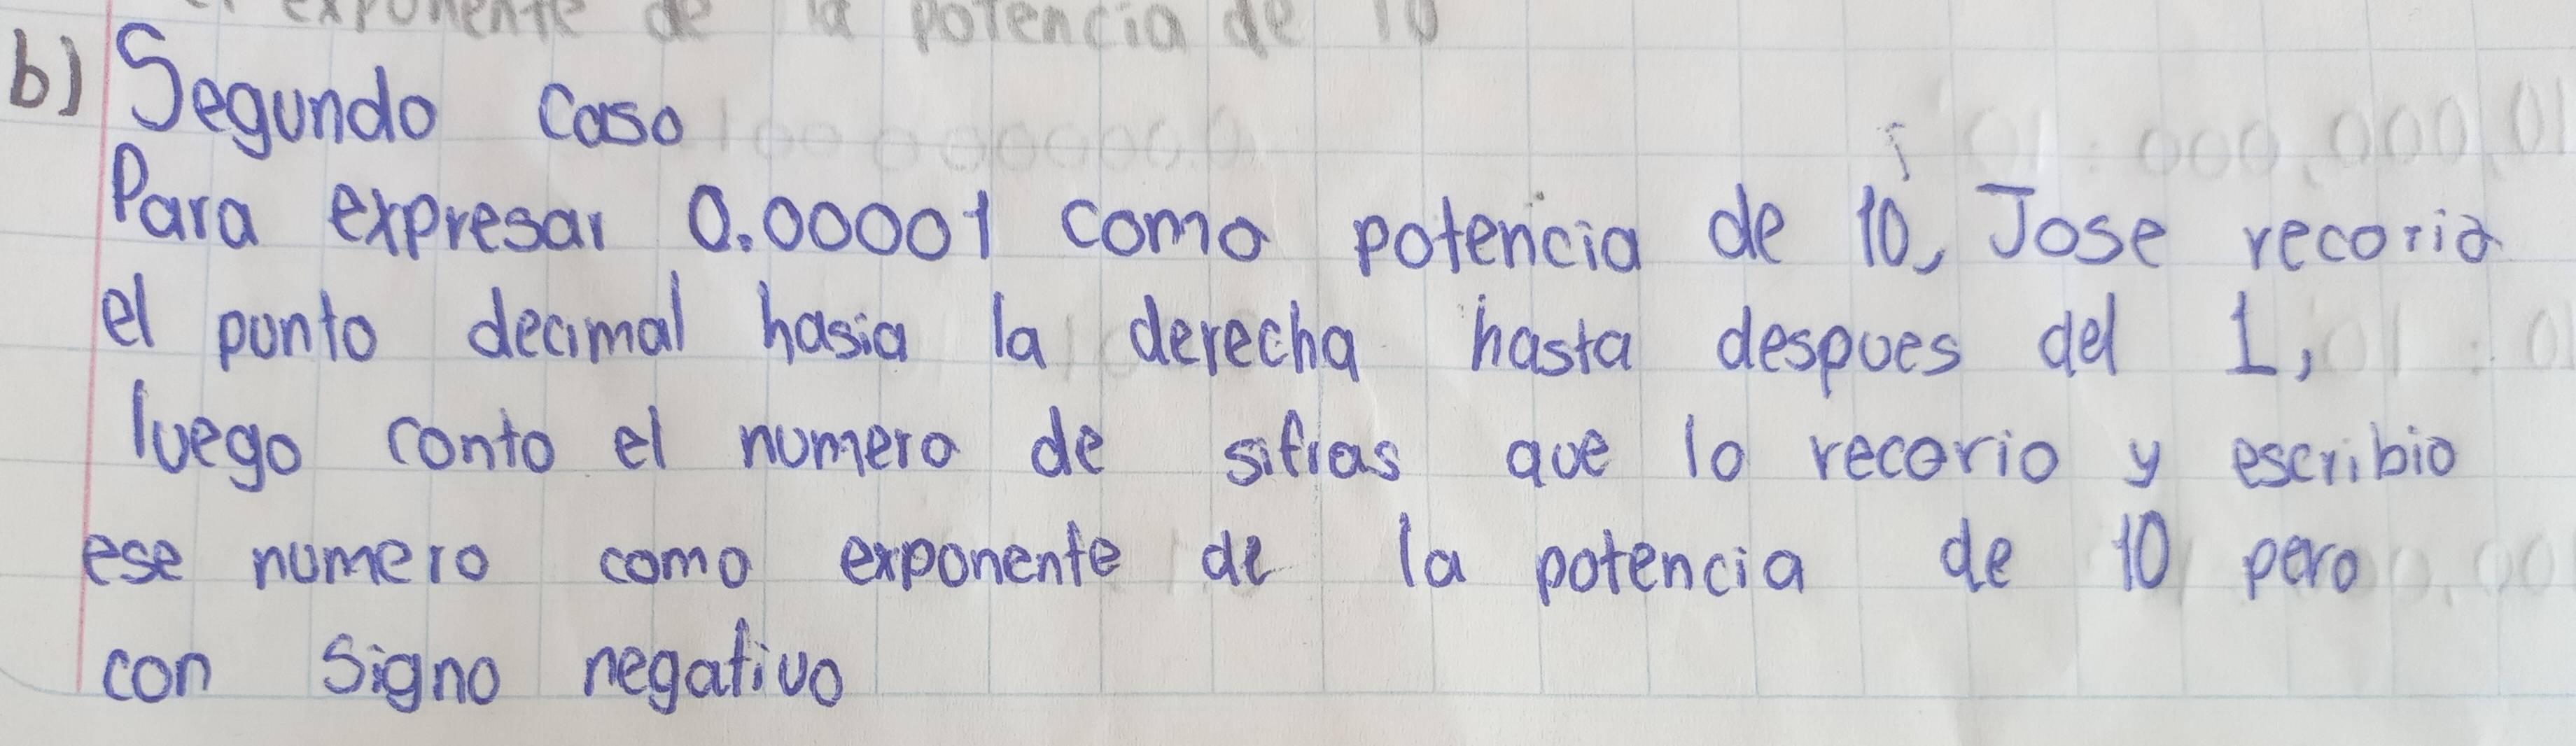 exponente de la potencia de 10
b) Segundo caso
Para expresar 0.00001 como potencia de 10, Jose recorrio
el punto decimal hasia la derecha hasta despues del 1,
luego conto el numero de sifras que lo recorio y escribio
ese numero como exponente de la potencia de 10 pero
con signo negativo